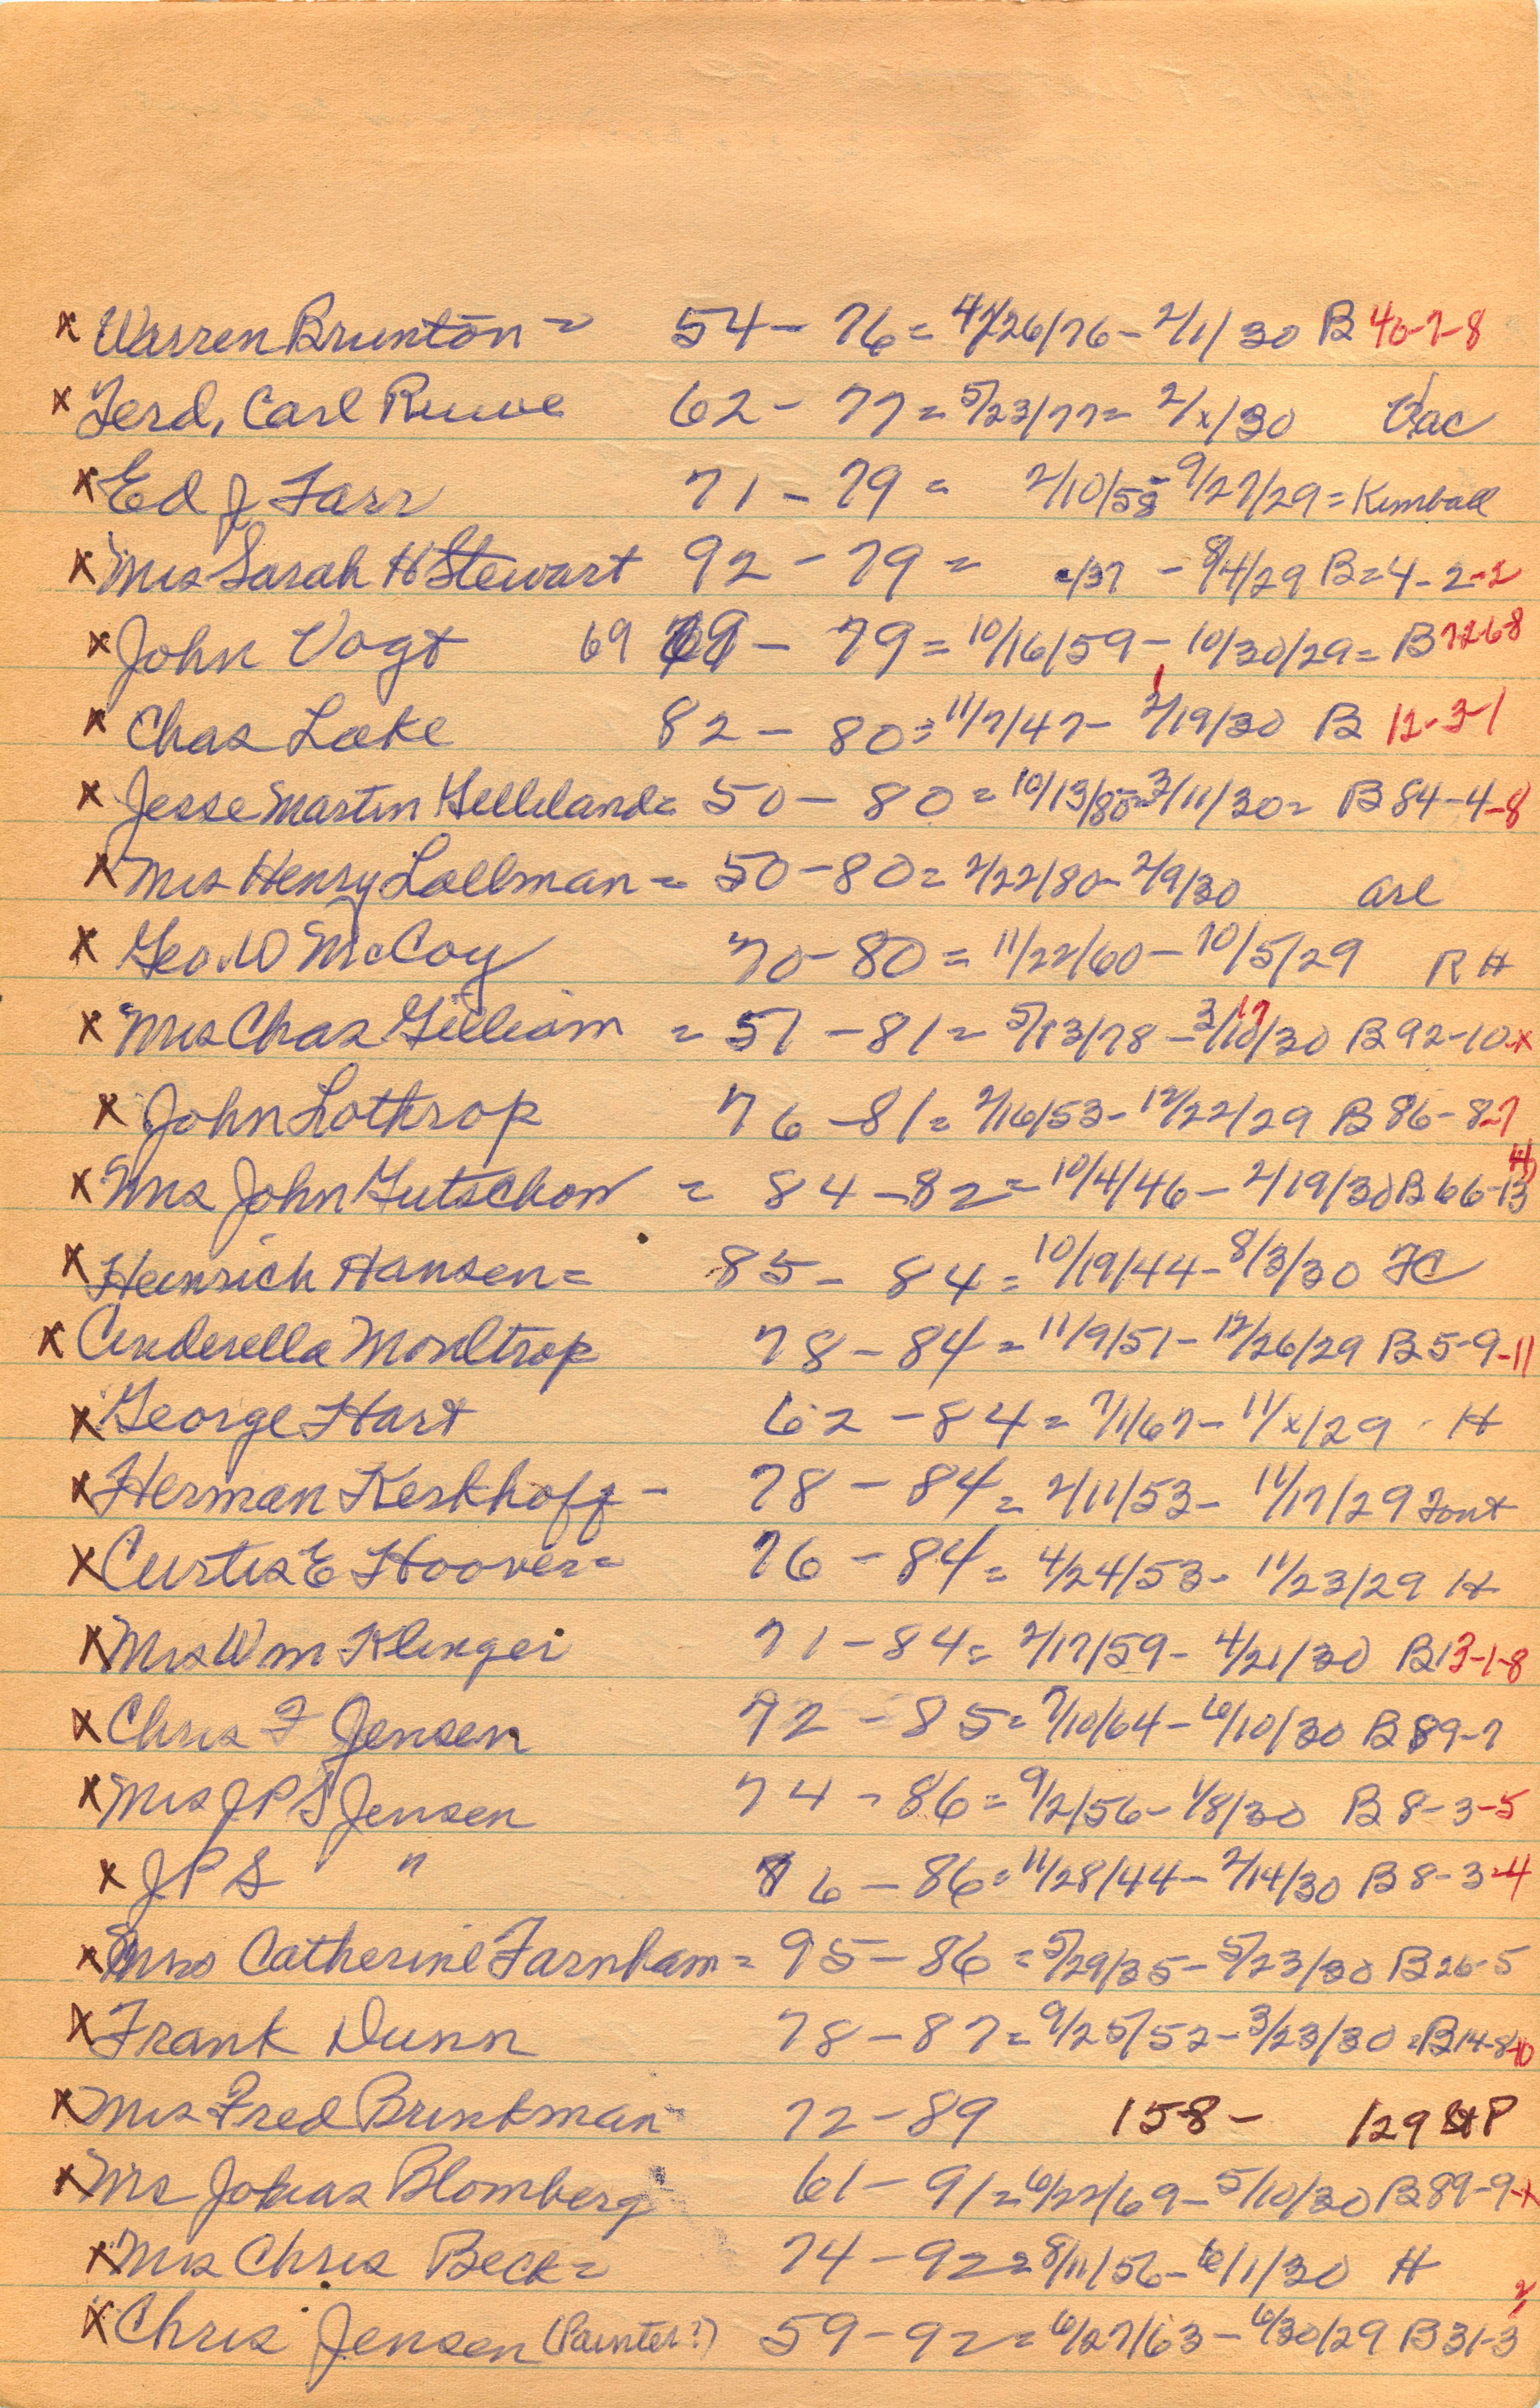 x Warren Brunton = 54 - 76 = 4/26/76 - 2/1/30 B 40-7-8
x Ferd, Carl Ruwe 62 - 77 = 5/23/77 = 2/x/30 Vac
x Ed J Farr 71 - 79 = 2/10/58 9/27/29 = Kimball
x Mrs Sarah H Stewart 92 - 79 = /37 - 8/4/29 B = 4-2-2
x John Vogt 69 69 - 79 = 10/16/59 - 10/30/29 = B 72-6-8
x Chas Lake 82 - 80 = 11/7/47 - 2/19/30 B 12-3-1
x Jesse Martin Gilliland = 50 - 80 = 10/13/80 = 3/11/30 = B 84-4-8
x Mrs Henry Lallman = 50 - 80 = 2/22/80 - 2/9/30 Arl
x Geo. W McCoy 70 - 80 = 11/22/60 - 10/5/29 R H
x Mrs Chas Gilliam = 51 - 81 = 5/13/78 - 3/10/30 17 B 92-10-x
x John Lothrop 76 - 81 = 2/16/53 - 12/22/29 B 86-8-7
x Mrs John Gutschow = 84 - 82 = 10/4/46 - 2/19/30 B 66-13
x Heinrich Hansen = 85 - 84 = 10/19/44 - 8/3/30 FC
x Cinderella Moultrop 78 - 84 = 11/9/51 - 12/26/29 B 5-9-11
x George Hart 62 - 84 = 7/1/67 - 11/x/29 H
x Herman Kerkhoff - 78 - 84 = 2/11/53 - 11/17/29 Font
x Curtis E Hoover = 76 - 84 = 4/24/53 - 11/23/29 H
x Mrs Wm Klinger 71 - 84 = 2/17/59 - 4/21/30 B 13-1-8
x Chris F Jensen 72 - 85 = 7/10/64 - 6/10/30 B 89-7
x Mrs J P S Jensen 74 - 86 = 9/2/56 - 1/8/30 B 8-3-5
x J P S " 86 - 86 = 11/28/44 - 2/14/30 B 8-3-4
x Mrs Catherine Farnham = 95 - 86 = 5/29/35 - 5/23/30 B 26-5
x Frank Dunn 78 - 87 = 9/25/52 - 3/23/30 = B 14-8-10
x Mrs Fred Brinkman 72 - 89 158 - /29 St P
x Mrs Johas Blomberg 61 - 91 = 6/22/69 - 5/10/30 B 89-9-x
x Mrs Chris Beck = 74 - 92 = 8/11/56 - 6/1/30 H
x Chris Jensen (Painter?) 59 - 92 = 6/27/63 - 6/30/29 B 31-3